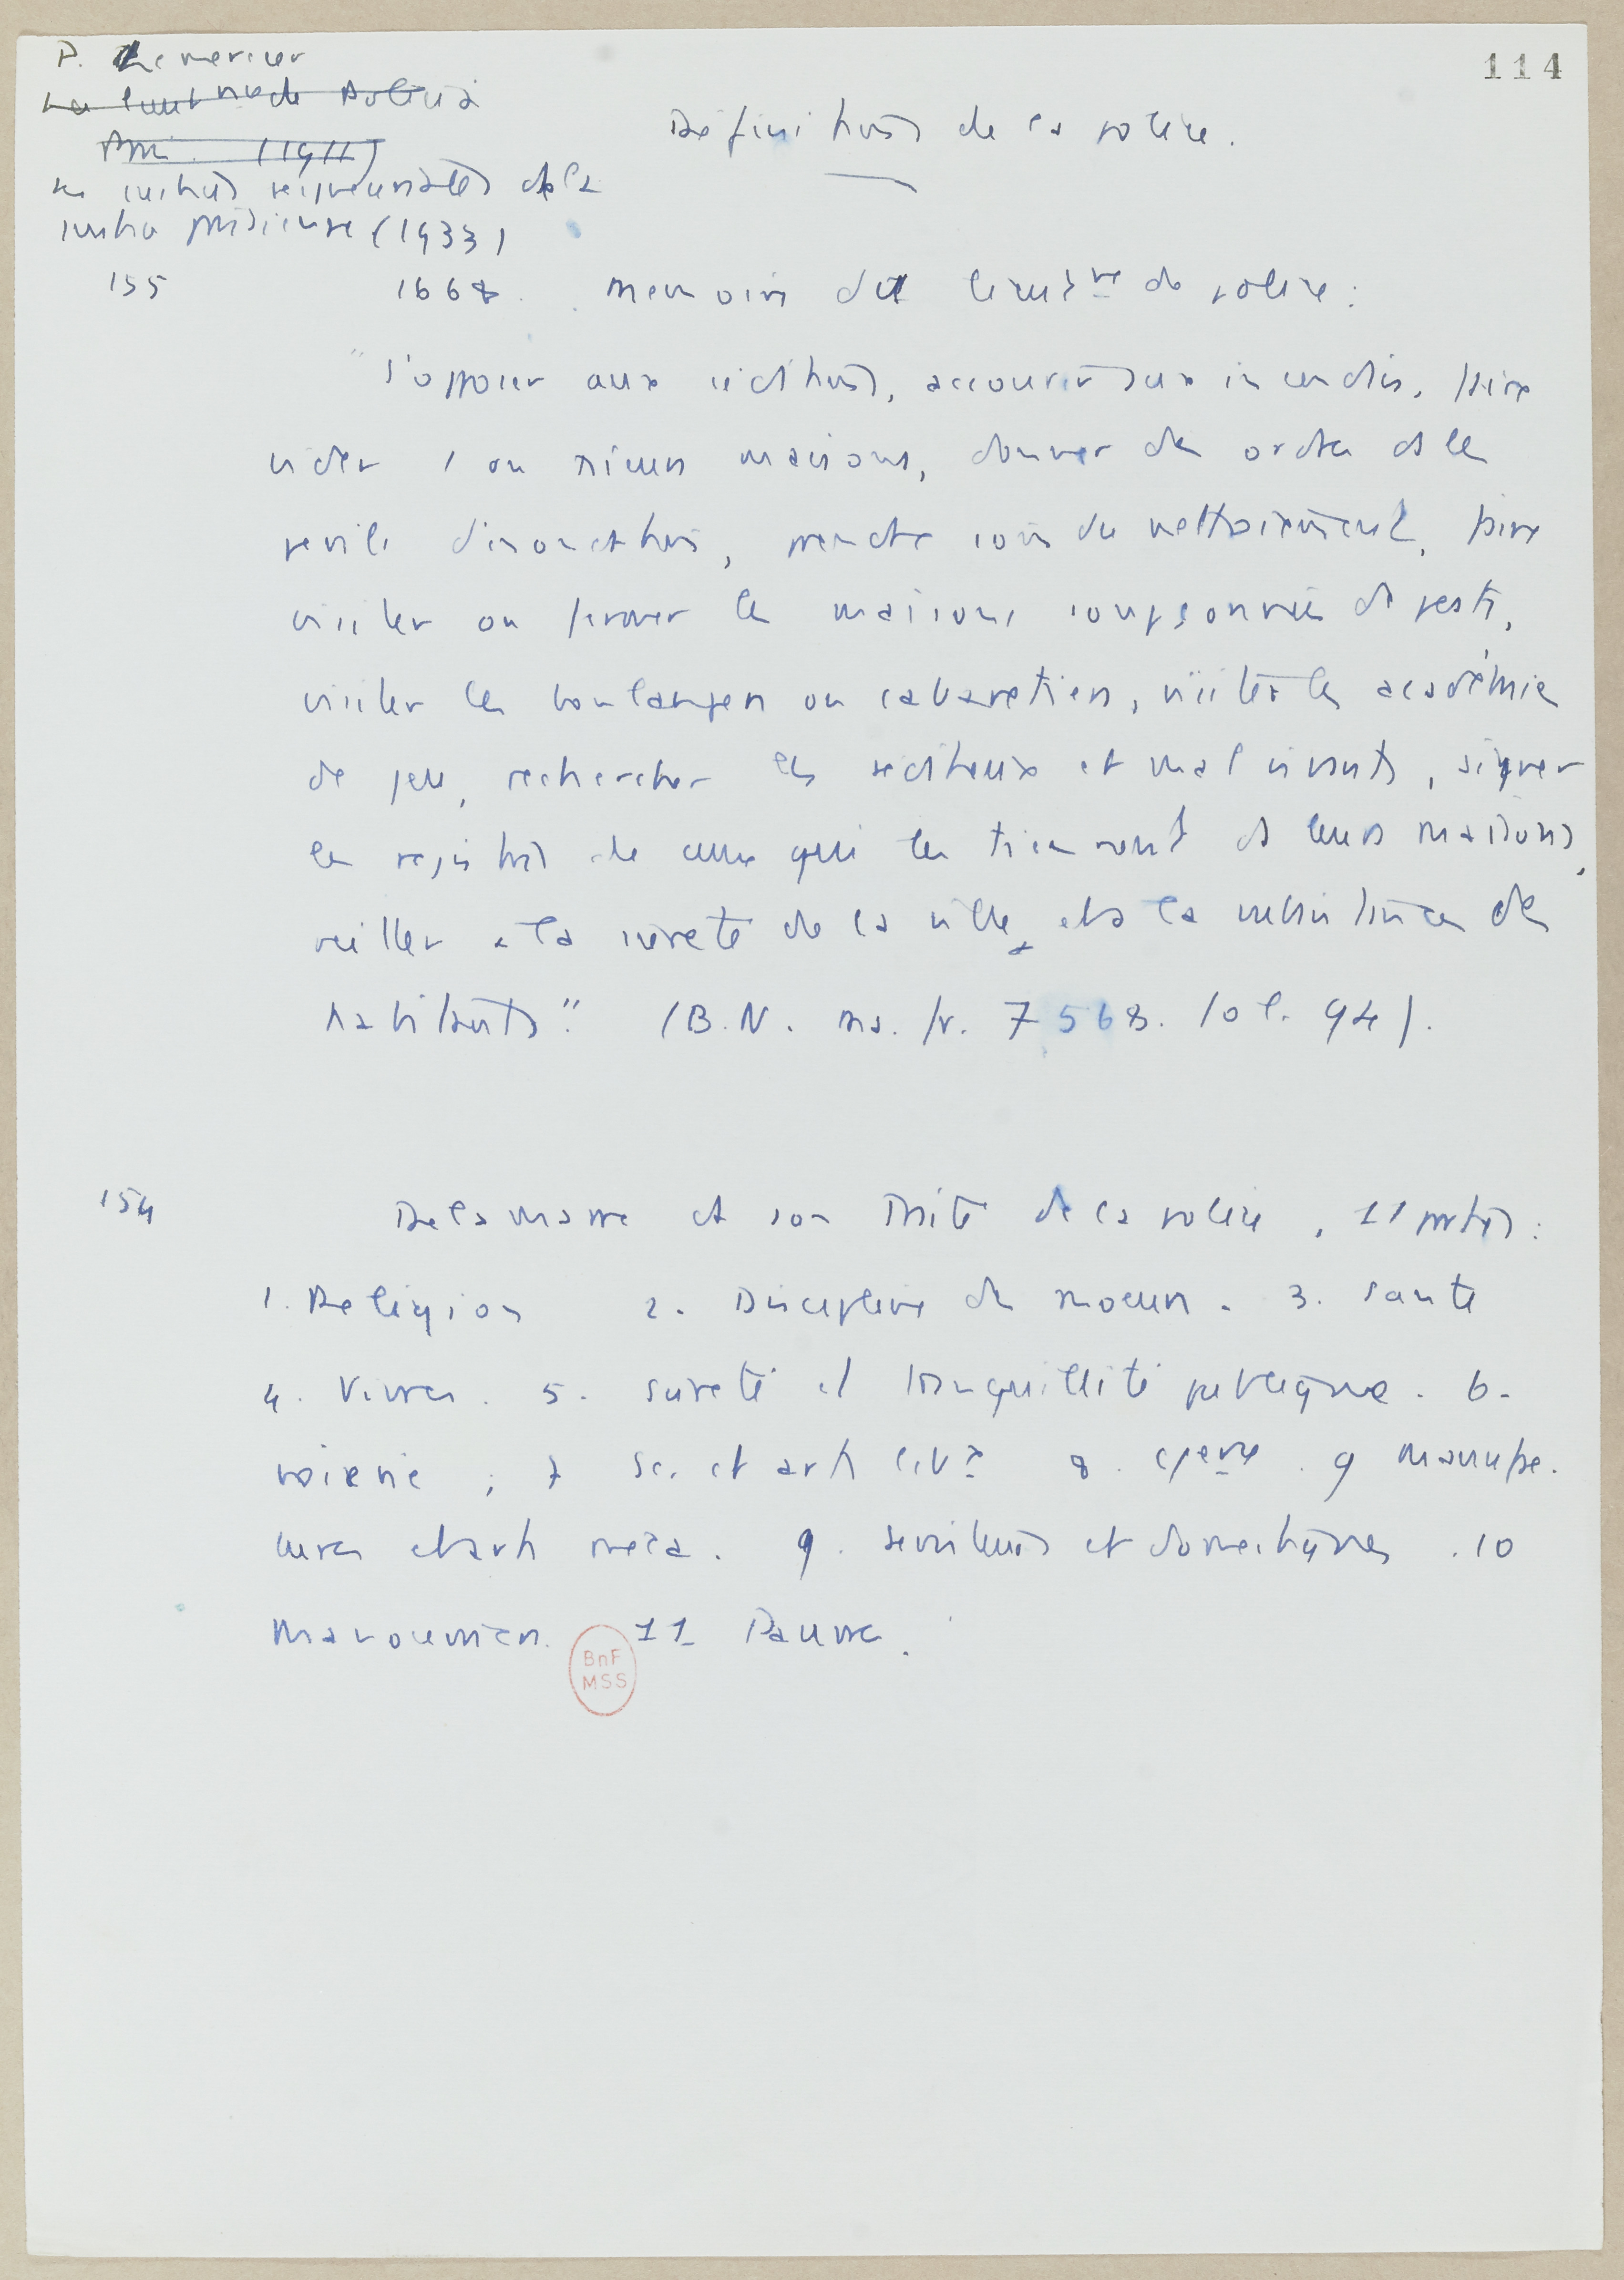 114
P. Lemercier
Définitions de la police.
Les justices seigneuriales de la
justice parisienne (1933)
155 1668. Mémoire du lieut civ de police :
"S'opposer aux séditions, accourir aux incendies, faire
vider 1 ou plieurs maisons, donner des ordres ds les
périls d'inondations, prendre soin du nettoiement, faire
visiter ou fermer les maisons soupçonnées de peste,
visiter les boulangers ou cabaretiers, visiter les académies
de jeu, rechercher les séditieux et mal vivants, signer
les registres de ceux qui les tiennent ds leurs maisons,
veiller à la sûreté de la ville, et à la subsistance des
habitants". (B.N. ms. fr. 7568. fol. 94).
154 Delamare et son Traité de la police, 11 parties :
1. Religion 2. Discipline des moeurs. 3. Santé
4. Vivres. 5. Sureté et tranquillité publique. 6.
voierie ; 7 Sc. et arts libx 8. Cerce. 9 Manufac-
tures et arts méca. 9. Serviteurs et domestiques. 10
Manouvriers. 11 Pauvres.
BnF
MSS